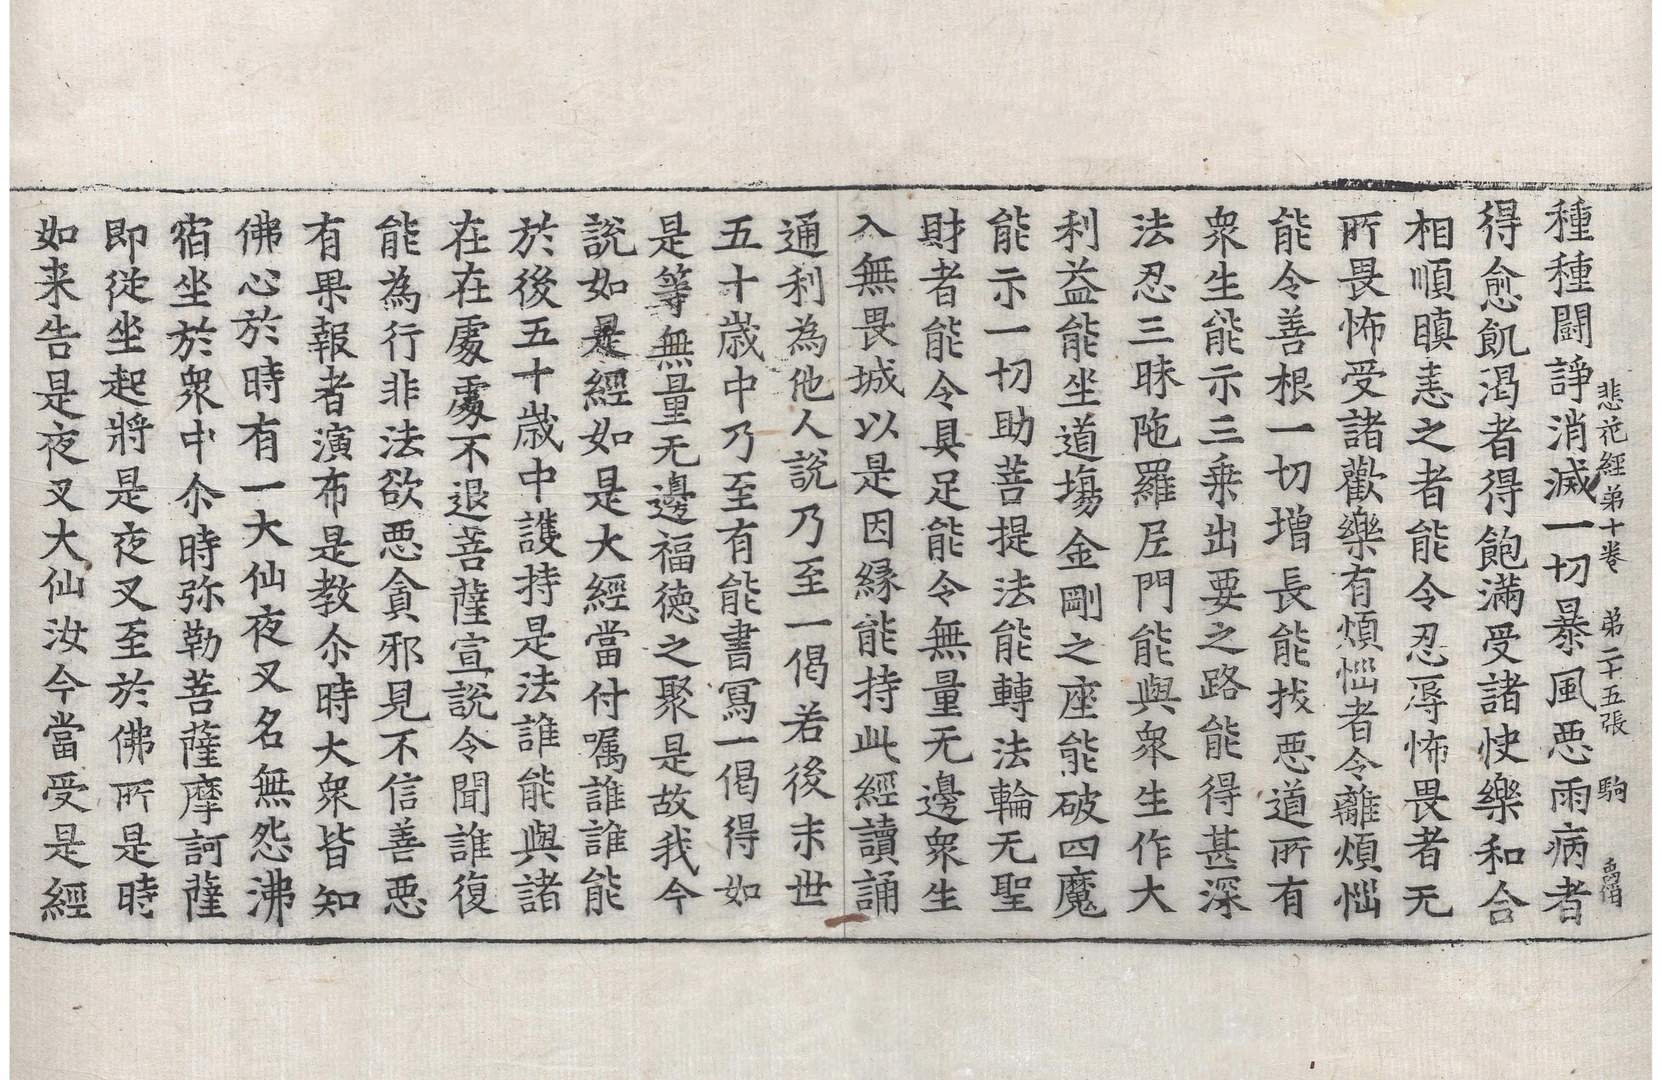 悲花經第十卷　第二十五張　駒
種種鬪諍消滅一切暴風惡雨病者
得愈飢渴者得飽滿受諸快樂和合
相順瞋恚之者能令忍辱怖畏者无
所畏怖受諸歡樂有煩惱者令離煩惱
能令善根一切增長能拔惡道所有
衆生能示三乗出要之路能得甚深
法忍三昧陁羅尼門能與衆生作大
利益能坐道塲金剛之座能破四魔
能示一切助菩提法能轉法輪无聖
財者能令具足能令無量无邊衆生
入無畏城以是因緣能持此經讀誦
通利為他人說乃至一偈若後末世
五十歲中乃至有能書寫一偈得如
是等無量无邊福德之聚是故我今
說如是經如是大經當付囑誰誰能
於後五十歲中護持是法誰能與諸
在在處處不退菩薩宣說令聞誰復
能為行非法欲惡貪邪見不信善惡
有果報者演布是教尒時大衆皆知
佛心於時有一大仙夜叉名無怨沸
宿坐於衆中尒時弥勒菩薩摩訶薩
即從坐起將是夜叉至於佛所是時
如来告是夜叉大仙汝今當受是經